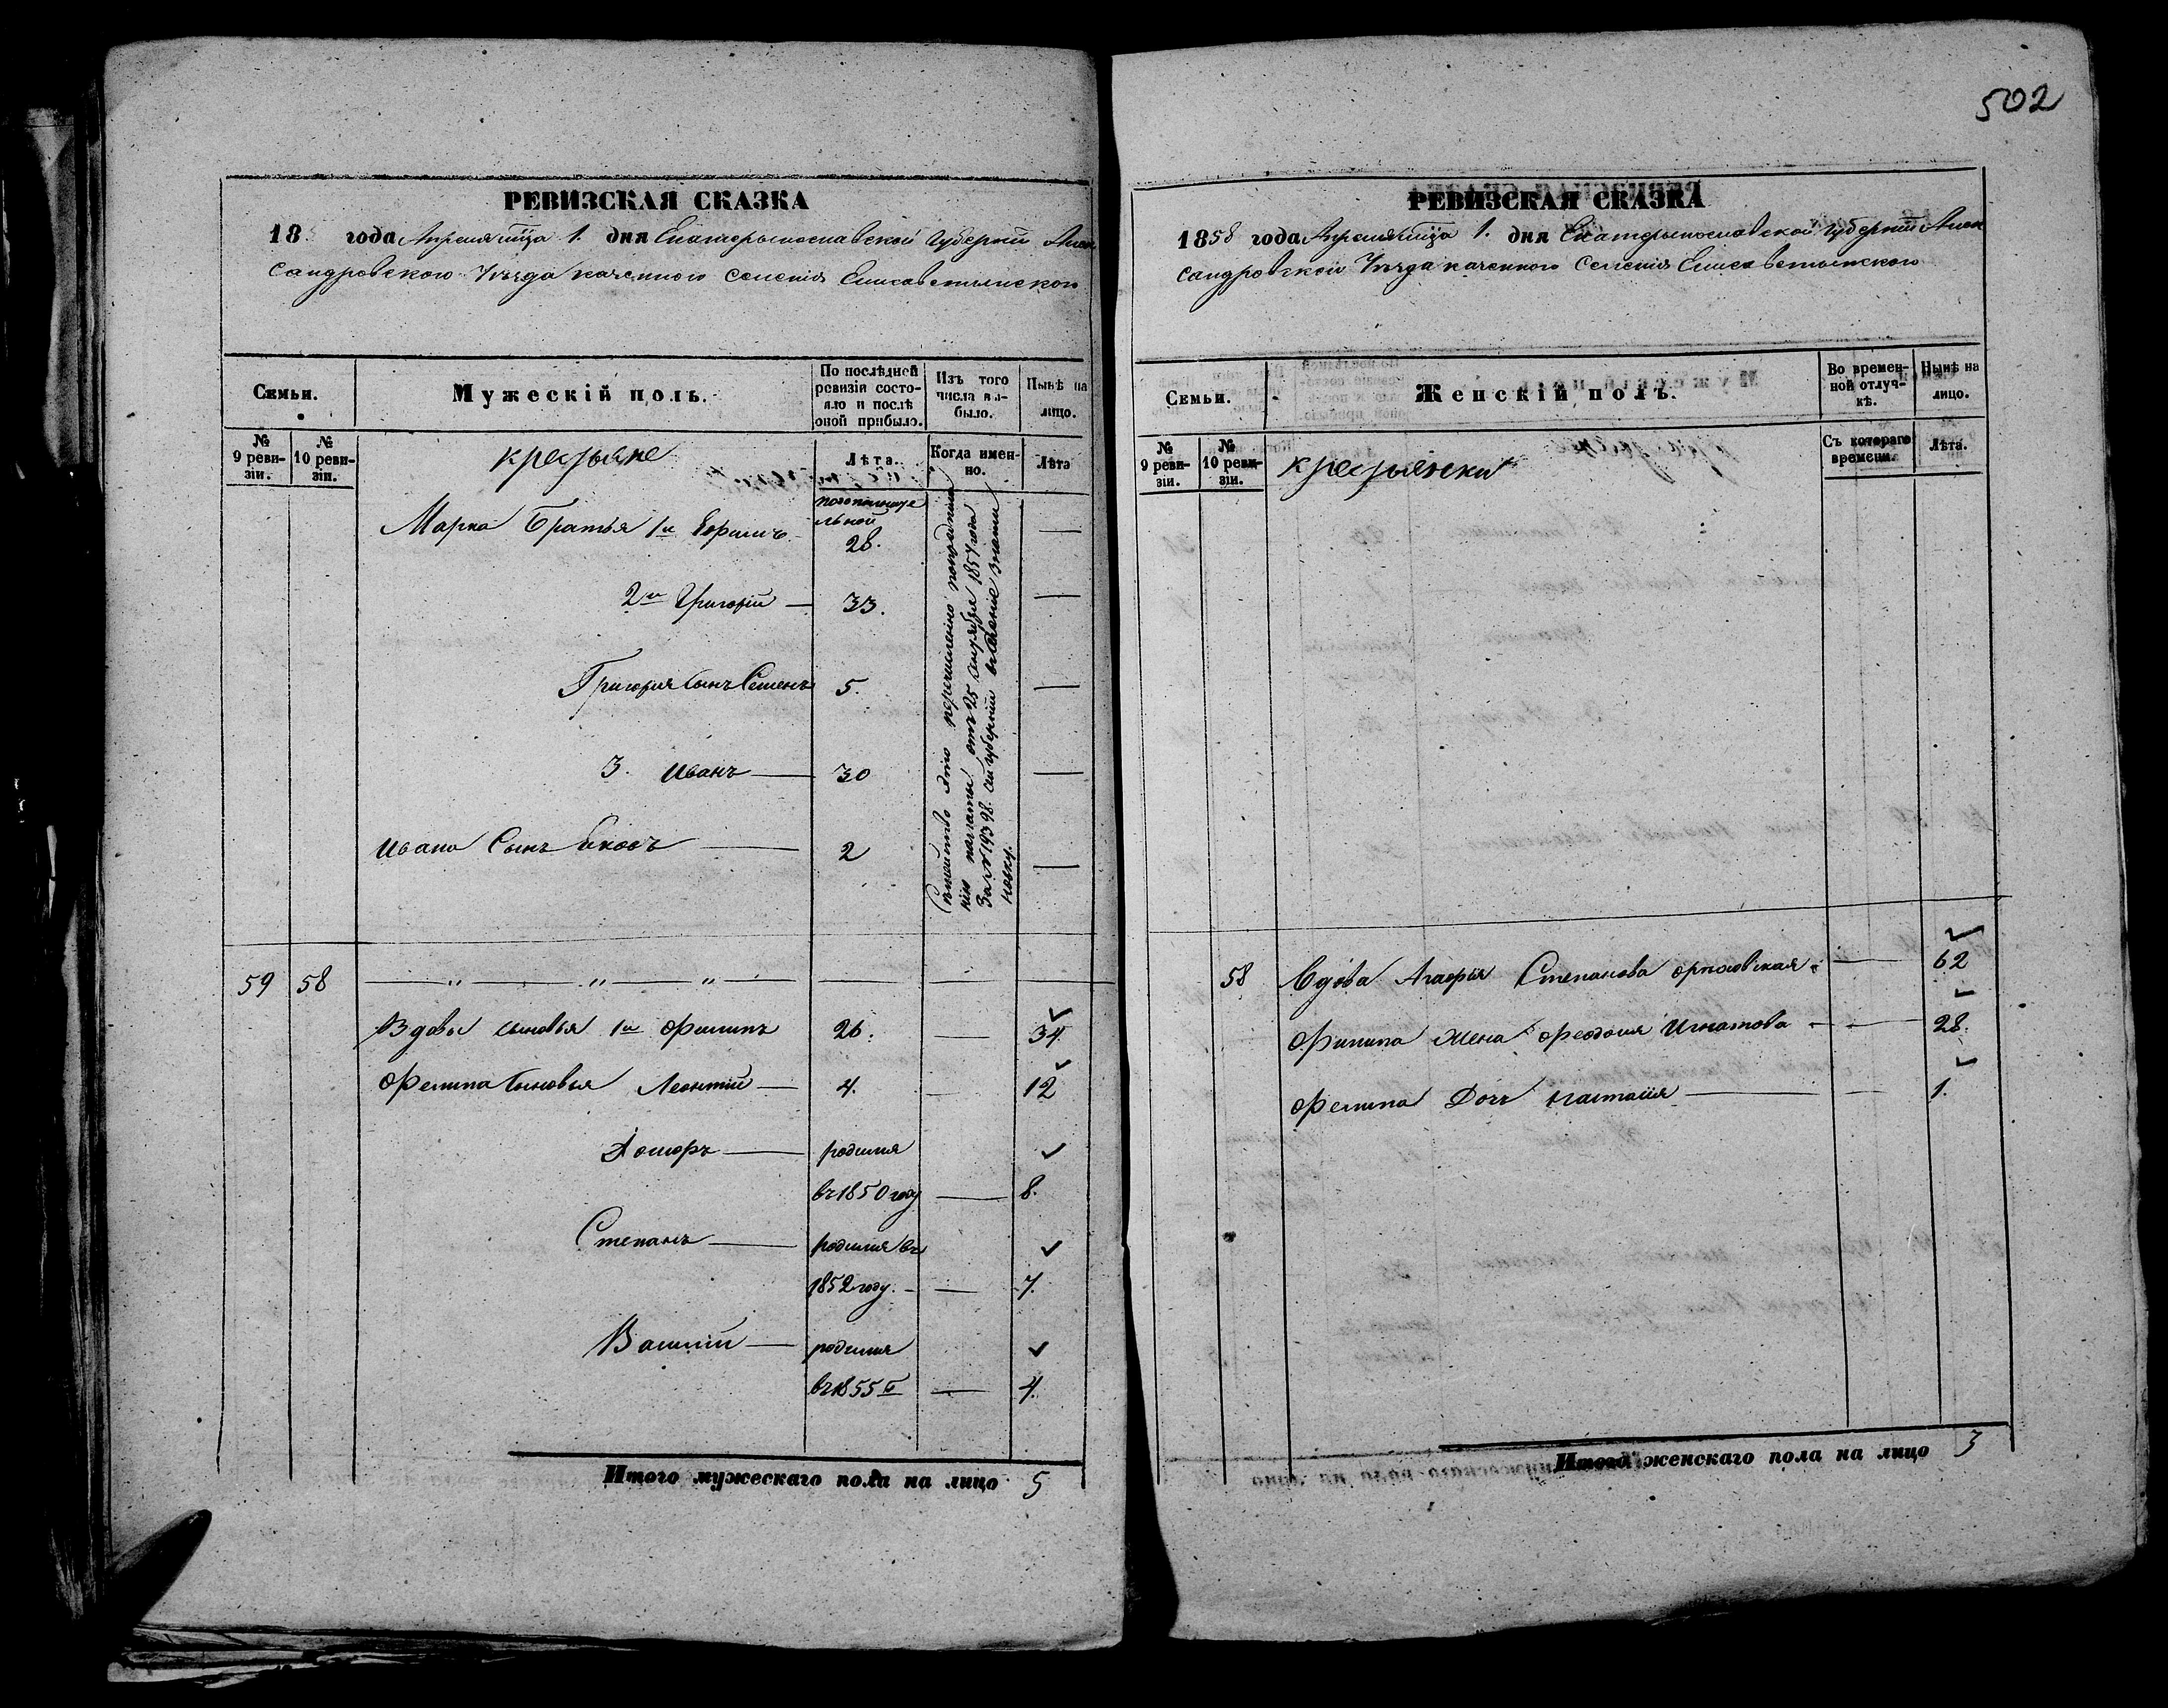 502
РЕВИЗСКАЯ СКАЗКА
18 года Апреля м̃ца 1. дня Екатеринославской Губерніи Алек
сандровского Уѣзда казенного Селенія Елисаветинского
Семьи.
Мужескій полъ.
По послѣдней ревизіи состояло и послѣ оной прибыло.
Изъ того числа выбыло.
Нынѣ на лицо.
№ 9 ревизіи.
№ 10 ревизіи.
крестьяне
Лѣта.
Когда именно.
Лѣта
Марка Братья 1й Ефимъ
28.
2й Григорій — 33. —
Григорія Сынъ Семенъ 5. —
3. Иванъ — 30 —
Ивана Сынъ Яковъ — 2 —
Семейство это перечислено
палаты отъ 25 1857 года
За № 19398. губерніи
59 58 — " — " — " —
Вдовы сыновья 1й Филипъ 26. — 34.
Филипа Сыновья Леонтій — 4. — 12
родился
въ 1850 году — 8.
Степанъ — родился въ
1852 году. — 7.
Василій — родился
въ 1855 г — 4.
Итого мужескаго пола на лицо 5
РЕВИЗСКАЯ СКАЗКА
1858 года Апреля м̃ца 1. дня Екатеринославской Губерніи Алек
сандровской Уѣзда казенного Селенія Елисаветинского
Семьи.
Женскій полъ.
Во временной отлучкѣ.
Нынѣ на лицо.
№ 9 ревизіи.
№ 10 ревизіи.
крестьянки
Съ котораго времени.
Лѣта.
58 Вдова Агафія Степанова — 62
Филипа Жена Феодосия Игнатова — 28.
Филипа Дочь — 1.
Итого женскаго пола на лицо 3